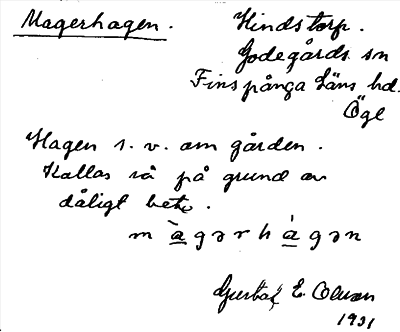 Magerhagen. Hindstorp.
Godegårds sn
Finspånga läns hd.
Ögl
Hagen s.v. om gården.
Kallas så på grund av
dåligt bete.
m a̱̍̀ gər h a̱̍ gən
Gustaf E. Olsson
1931